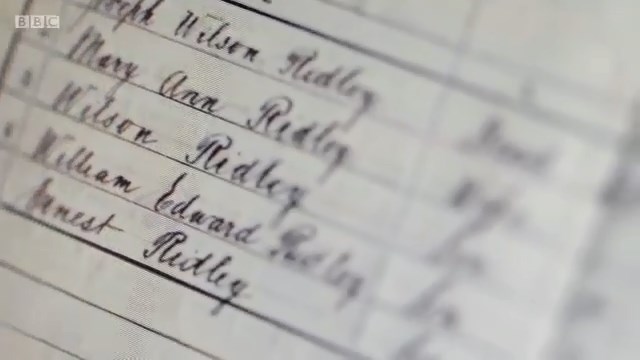 BBC
Joseph Wilson Ridley Head
Mary Ann Ridley Wife
Wilson Ridley Son
William Edward Ridley Son
Ernest Ridley